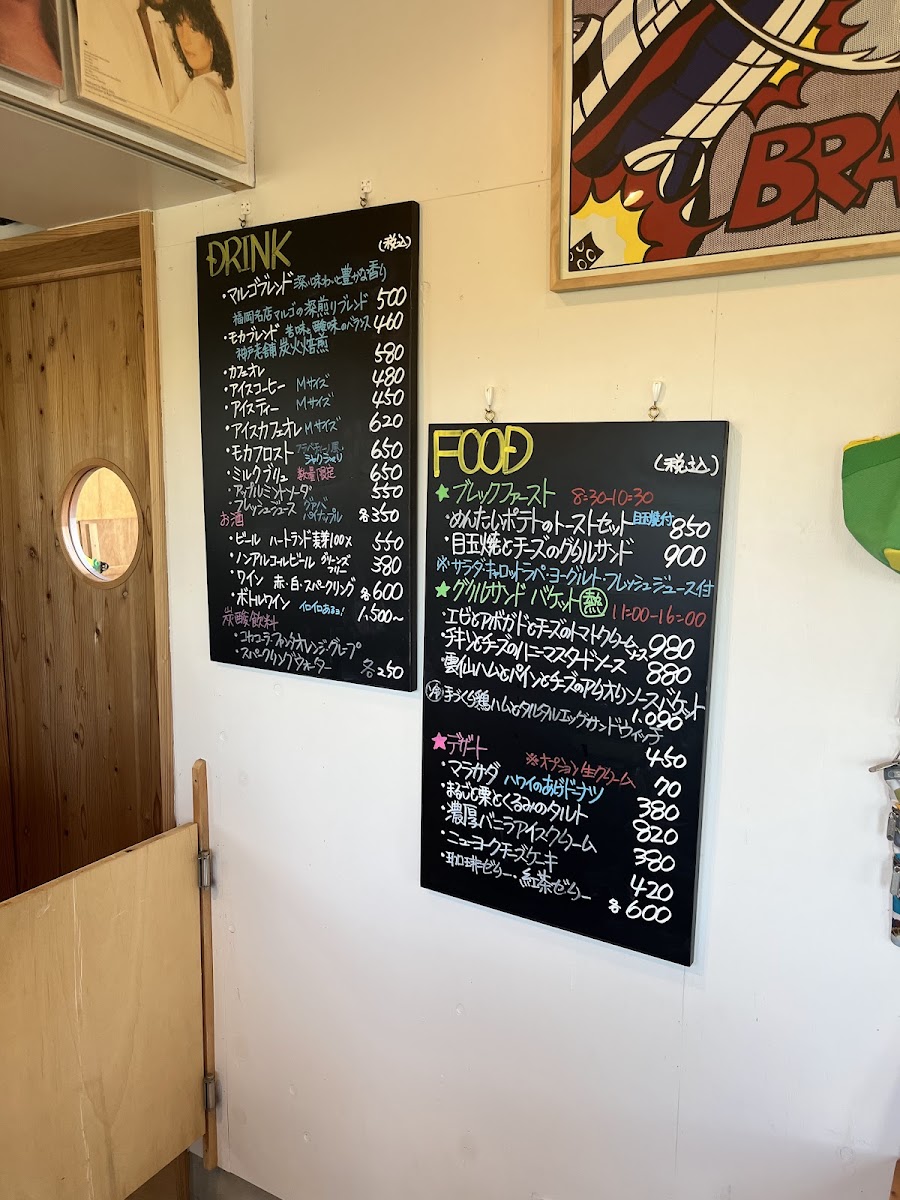 BRA
DRINK
(税込)
・マルゴブレンド 深い味わいと豊かな香り
福岡名店マルゴの深煎りブレンド 500
・モカブレンド 苦味と酸味のバランス 460
神戸老舗 炭火焙煎
・カフェオレ 580
・アイスコーヒー Mサイズ 480
・アイスティー Mサイズ 450
・アイスカフェオレ Mサイズ 620
・モカフロスト フラペチーノ風 シャリシャリ 650
・ミルクブリュ 数量限定 650
・アップルミントソーダ 550
・フレッシュジュース グァバ パイナップル 各350
お酒
・ビール ハートランド麦芽100% 550
・ノンアルコールビール グリーンズフリー 380
・ワイン 赤・白・スパークリング 各600
・ボトルワイン イロイロあるヨ! 1,500〜
炭酸飲料
・コカコーラ・ファンタオレンジ・グレープ
・スパークリングウォーター 各250
FOOD
(税込)
★ブレックファースト 8:30-10:30
・めんたいポテトのトーストセット 目玉焼付 850
・目玉焼とチーズのグリルサンド 900
※サラダ・キャロットラペ・ヨーグルト・フレッシュジュース付
★グリルサンド バケット 熱 11:00-16:00
・エビとアボガドとチーズのトマトクリームソース 980
・チキンとチーズのハニーマスタードソース 880
・雲仙ハムとパインとチーズのアイオリソースバケット
1,090
冷 手づくり鶏ハムとタルタルエッグサンドウィッチ
450
★デザート ※オプション生クリーム 70
・マラサダ ハワイのあげドーナツ 380
・まるごと栗とくるみのタルト 820
・濃厚バニラアイスクリーム 380
・ニューヨークチーズケーキ 420
・珈琲ゼリー・紅茶ゼリー 各600